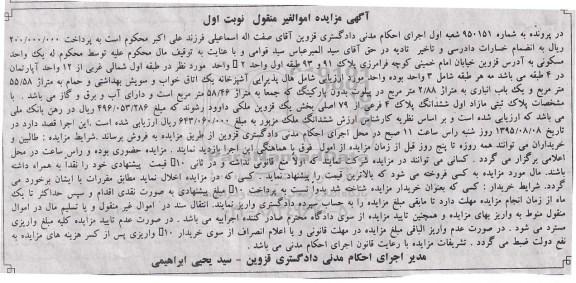 آگهی مزایده اموالغیر منقول نوبت اول
در پرونده به شماره ۹۵۰۱۵۱ شعبه اول اجرای احکام مدنی دادگستری قزوین آقای صفت اله اسماعیلی فرزند علی اکبر محکوم است به پرداخت ۲۰۰/۰۰۰/۰۰۰
ریال به انضمام خسارات دادرسی و تاخیر تادیه در حق آقای سید المیرعباس سید قوامی و با عنایت به توقیف مال محکوم علیه توسط محکوم له یک واحد
مسکونی به آدرس قزوین خیابان امام خمینی کوچه فرامرزی پلاک ۹۱ و ۹۳ طبقه اول واحد ۲ واحد مورد نظر در طبقه اول شمالی غربی از ۱۲ واحد آپارتمان
در ۴ طبقه می باشد مه هر طبقه شامل ۳ واحد بوده واحد مورد ارزیابی شامل هال پذیرایی آشپزخانه یک اتاق خواب و سویش بهداشتی و حمام به متراژ ۵۵/۵۸
متر مربع و یک باب انباری به متراژ ۲/۸۸ متر مربع در پیلوت بدون پارکینگ که جمعا به متراژ ۵۸/۴۶ متر مربع است و دارای آب و برق و گاز می باشد . با
مشخصات پلاک ثبتی مازاد اول ششدانگ پلاک ۴ فرعی از ۷۹ اصلی بخش یک قزوین ملکی داوود رشوند که مبلغ ۴۹۶/۰۵۳/۲۸۶ ریال در رهن بانک ملی
می باشد که ارزیابی شده است و بر اساس نظریه کارشناس ارزش ششدانگ ملک مزبور به مبلغ ۶۴۳/۰۶۰/۰۰۰ ریال ارزیابی شده است .این اجرا قصد دارد در
تاریخ ۱۳۹۵/۰۸/۰۸ روز شنبه راس ساعت ۱۱ صبح در محل اجرای احکام مدنی دادگستری قزوین از طریق مزایده به فروش برساند .شرایط مزایده : طالبین و
خریداران می توانند همه روزه تا پنج روز قبل از زمان مزایده از اموال فوق با هماهنگی این اجرا بازدید نمایند . مزایده حضوری بوده و راس ساعت در محل
اعلامی برگزار می گردد . کسانی می توانند در مزایده شرکت نمایند که اولا منع قانونی نداشته و در ثانی ۱۰ قیمت پیشنهادی خود را نقدا به همراه داشته
باشند. مال مورد مزایده به کسی فروخته می شود که بالاترین قیمت را پیشنهاد نماید . کسی که در مزایده اخلال نماید مطابق مقررات با ایشان برخورد می
گردد. شرایط خریدار : کسی که بعنوان خریدار مزایده شناخته شد بدوا نسبت به پرداخت ۱۰ مبلغ پیشنهادی به صورت نقدی اقدام و سپس حداکثر تا یک
ماه از زمان انجام مزایده مهلت دارد تا مابقی مبلغ مزایده را به حساب سپرده دادگستری واریز نمایند. انتقال سند در اموال غیر منقول و یا تسلیم مال در اموال
منقول منوط به واریز بهای مزایده و همچنین تایید مزایده از سوی دادگاه محترم صادر کننده اجراییه می باشد . در صورت عدم تایید مزایده کلیه مبلغ واریزی
مسترد می شود . در صورت عدم واریز الباقی مبلغ مزایده در مهلت قانونی و یا اعلام انصراف از سوی خریدار ۱۰ واریزی پس از کسر هزینه های مزایده به
نفع دولت ضبط می گردد . تشریفات مزایده با رعایت قانون اجرای احکام مدنی می باشد .
مدیر اجرای احکام مدنی دادگستری قزوین - سید یحیی ابراهیمی